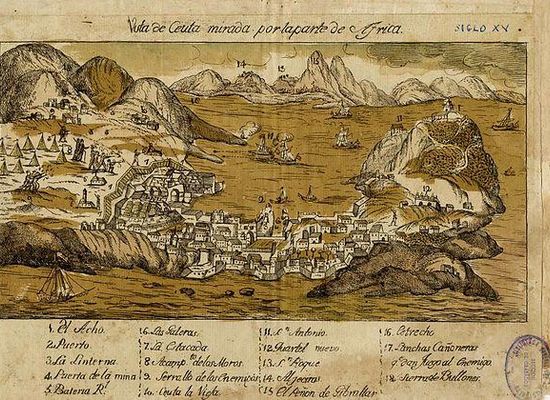 Vista de Ceuta mirada por la parte de Africa.
SIGLO XV
1. El Acho.
2. Puerto.
3. La Linterna.
4. Puerta de la mina
5. Bateria Rl.
6. Las Galeras.
7. La Estacada.
8. Acampto. de los Moros.
9. Serrallo de los Enemigos
10. Ceuta la Vieja.
11. Sn. Antonio.
12. Quartel nuevo.
13. Sn. Roque
14. Algeciras.
15. El Peñon de Gibraltar
16. Estrecho
17. Lanchas Cañoneras
qe. dan fuego al enemigo.
18. Sierra de Bullones.